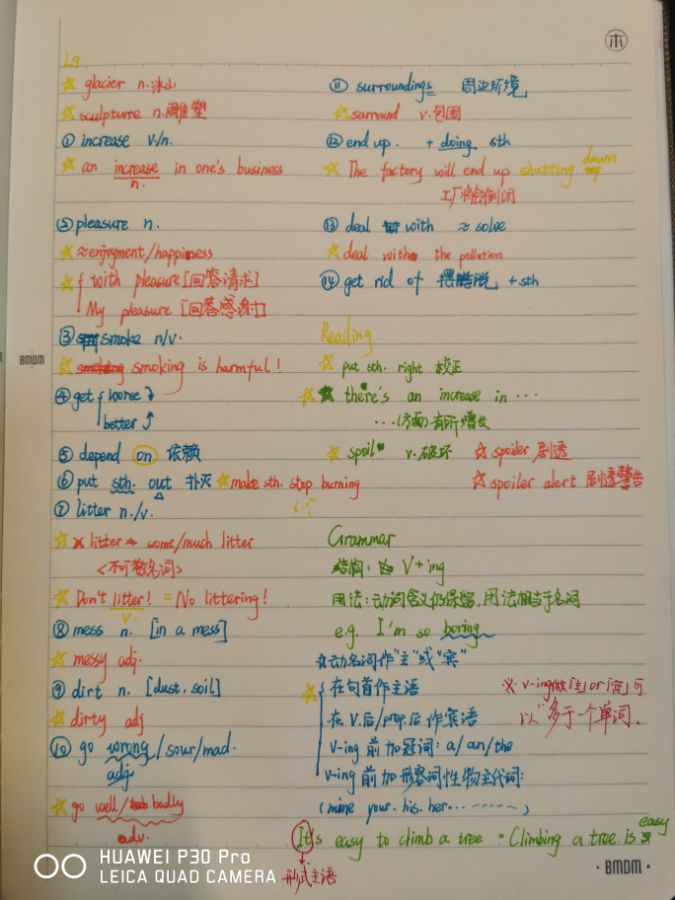 木
L9
☆ glacier n.冰山
☆ sculpture n.雕塑
① increase v./n.
☆ an increase in one's business
n.
② pleasure n.
☆ ≈enjoyment/happiness
☆ with pleasure [回答请求]
My pleasure [回答感谢]
③ smoke n/v.
☆ smoking is harmful!
④ get worse ↓
better ↑
⑤ depend on 依赖
⑥ put sth. out 扑灭 ☆make sth. stop burning
⑦ litter n./v.
☆ × litter → some/much litter
<不可数名词>
☆ Don't litter! = No littering!
v.
⑧ mess n. [in a mess]
☆ messy adj.
⑨ dirt n. [dust, soil]
☆ dirty adj
⑩ go wrong/sour/mad.
adj.
☆ go well/badly
adv.
⑪ surroundings 周边环境
☆ surround v.包围
⑫ end up. + doing sth
☆ The factory will end up shutting down
工厂将会倒闭
⑬ deal with ≈ solve
☆ deal with the pollution
⑭ get rid of 摆脱 +sth
Reading
☆ put sth. right 校正
☆ there's an increase in ...
...(方面)有所增长
☆ spoil v.破坏 ☆ spoiler 剧透
☆ spoiler alert 剧透警告
Grammar
结构: V+ing
用法:动词含义仍保留,用法相当于名词
e.g. I'm so boring
☆动名词作"主"或"宾"
☆ 在句首作主语
在v.后/prep.后 作宾语
V-ing 前加冠词: a/an/the
v-ing前加形容词性物主代词:
(mine your. his. her.........)
※ v-ing做[主]or[宾]可
以"多于一个单词.
It's easy to climb a tree = Climbing a tree is easy
形式主语
BMDM
BMDM
HUAWEI P30 Pro
LEICA QUAD CAMERA